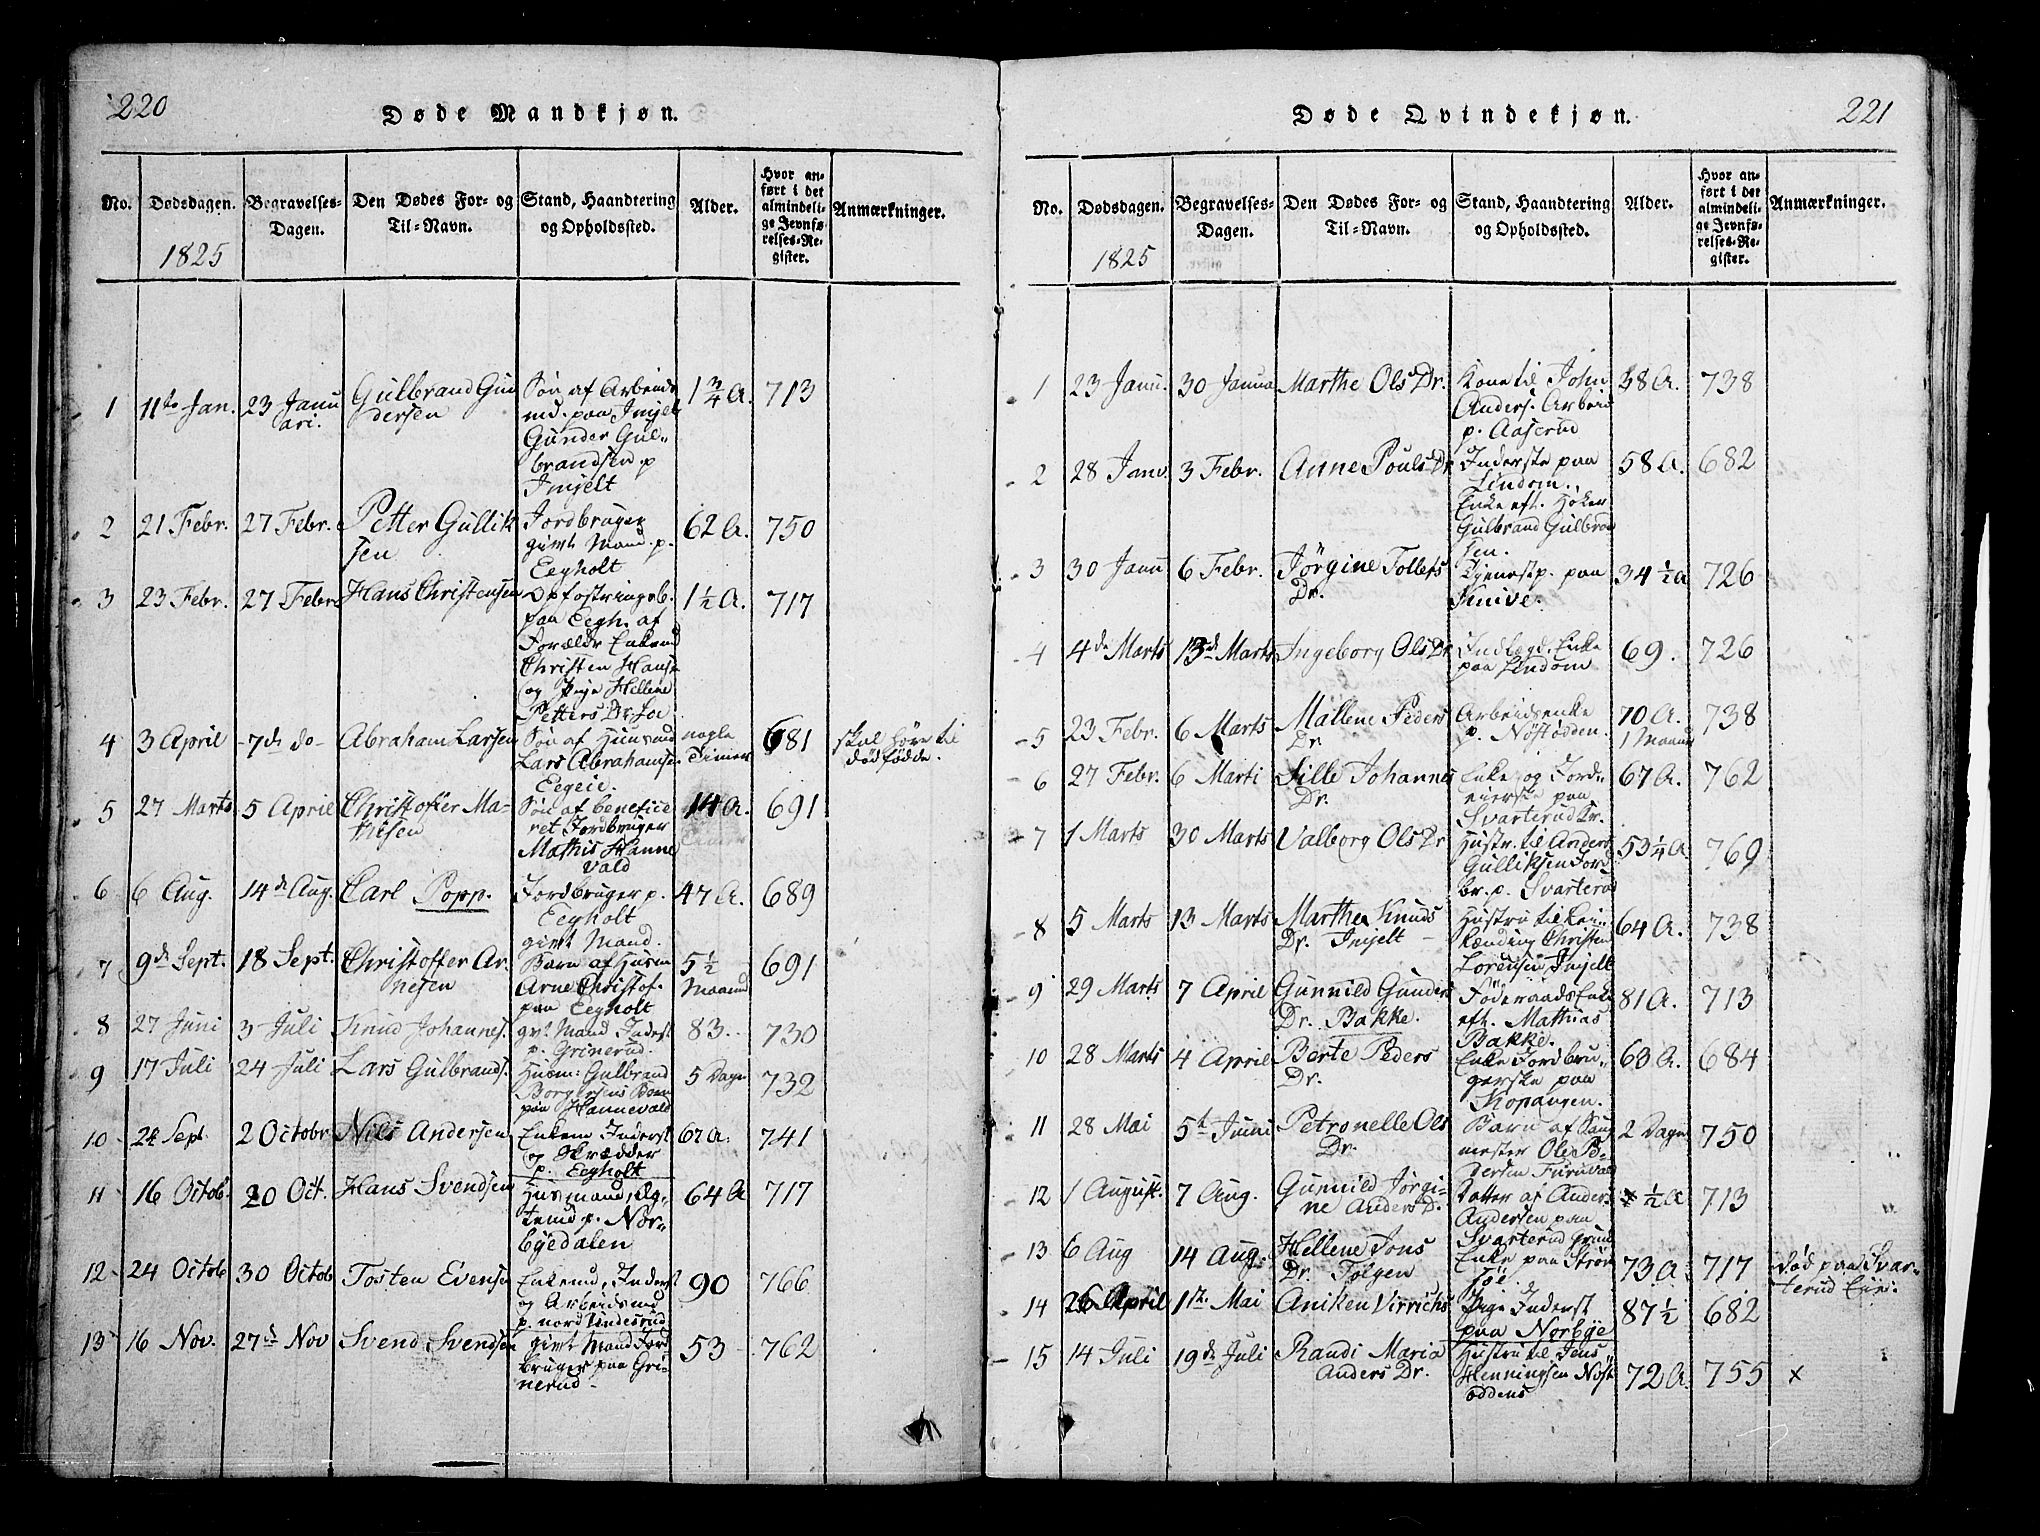 220
Døde Mandkjøn.
No. Dødsdagen. Begravelses-Dagen. Den Dødes For- og Til-Navn. Stand, Haandtering og Opholdssted. Alder. Hvor anført i det almindelige Jevnførelses-Register. Anmærkninger.
1825
1 11te Jan. 23 Januari. Gulbrand Gundersen
Søn af Arbeids
md. paa Imjelt
Gunder Gul-
brandsen p
Imjelt
1 3/4 A. 713
2 21 Febr. 27 Febr. Petter Gulliksen
Jordbruger
givt Mand. p.
Eegholt
62 A. 750
3 23 Febr. 27 Febr. Hans Christensen
Opfostringsb.
paa Eegh. af
Forældr Enkemd
Christen Hanse
og Pige Hellene
Petters Dr. Loe
1 1/2 A. 717
4 3 April 7de do Abraham Larsen
Søn af Huusmd
Lars Abrahamse
Eegeie.
nogle Timer 681 skal høre til dødfødde.
5 27 Marts 5 April Christoffer Ma-
thisen
Søn af benefice
ret Jordbruger
Mathis Hanne
vald
14 A. 691
6 6 Aug. 14de Aug. Carl Popp.
Jordbruger p.
Eegholt
givt Mand.
47 A. 689
7 9de Sept. 18 Sept. Christoffer Ar
nesen
Barn af Husm
Arne Christof.
paa Eegholt
5 1/2 Maaned 691
8 27 Juni 3 Juli Knud Johannes.
gvt Mand Inderst
p. Grinerud.
83. 730
9 17 Juli 24 Juli Lars Gulbrands.
Husm: Gulbrand
Borgersens Barn
paa Hannevald
5 Dage 732
10 24 Sept. 2 Octobr Nils Andersen
Enkem Inderst
og Skrædder
p. Eegholt
67 A. 741
11 16 Octob. 20 Oct. Hans Svendsen
Husmand, Æg-
temd p. Nor-
byedalen
64 A 717
12 24 Octob 30 Octob Tosten Evensen
Enkemd, Inderst
og Arbeidsmd
p. nord Lindesrud
90 766
13 16 Nov. 27de Nov Svend Svendsen
givt Mand Jord
bruger paa Gri-
nerud
53 762
221
Døde Qvindekjøn.
No. Dødsdagen. Begravelses-Dagen. Den Dødes For- og Til-Navn. Stand, Haandtering og Opholdssted. Alder. Hvor anført i det almindelige Jevnførelses-Register. Anmærkninger.
1825
1 23 Janu. 30 Janua Marthe Ols Dr.
Kone til John
Anders. Arbeid
p. Aaserud
38 A. 738
2 28 Janv. 3 Febr. Anne Pouls Dr
Inderste paa
Lindom.,
Enke eft. Høker
Gulbrand Gulbran
sen.
58 A. 682
3 30 Janu 6 Febr. Jørgine Tollefs
Dr.
Tjenestp. paa
Knive.
34 1/2 A 726
4 4de Marts 13de Marts Ingeborg Ols Dr
Indlagd. Enke
paa Lindom
69. 726
5 23 Febr. 6 Marts Mallene Peders
Dr
Arbeidsenke
p. Nøstodden.
70 A. 1 Maaned 738
6 27 Febr. 6 Marti Sille Johannes
Dr.
Enke og Jord-
eierste paa
Svarterud Gr.
67 A. 762
7 1 Marts 30 Marts Valborg Ols Dr
Hustr. til Anders
Gulliksen Jord
br. p. Svarterud
53 1/4 A 769
8 5 Marts 13 Marts Marthea Knuds
Dr. Imjelt
Hustru til Lei-
lænding Christen
Lorensen Imjelt
64 A. 738
9 29 Marts 7 April Gunnild Gunders
Dr. Bakke.
Føderaads Enke
eft. Mathias
Bakke.
81 A. 713
10 28 Marts 4 April Berte Peders
Dr.
Enke Jordbru-
gerske paa
Kopangen.
63 A. 684
11 28 Mai 5t Juni Petronelle Ols
Dr.
Barn af Saug
mester Ole Pe-
dersen Furuvald
2 Dage 750
12 1 August. 7 Aug. Gunnild Jørgi-
ne Anders D.
Datter af Anders
Andersen paa
Svarterud Grund
1/2 A 713
13 6 Aug 14 Aug. Hellene Jons
Dr. Følgen
Enke paa Strøm
søe.
73 A. 717 død paa Svar-
terud Eie.
14 26 April 1te Mai Aniken Virrichs
Pige Inderst
paa Norbye
87 1/2 682
15 14 Juli 19de Juli Randi Maria
Anders Dr.
Hustru til Jens
Henningsen Nøst
oddens
72 A. 755 x